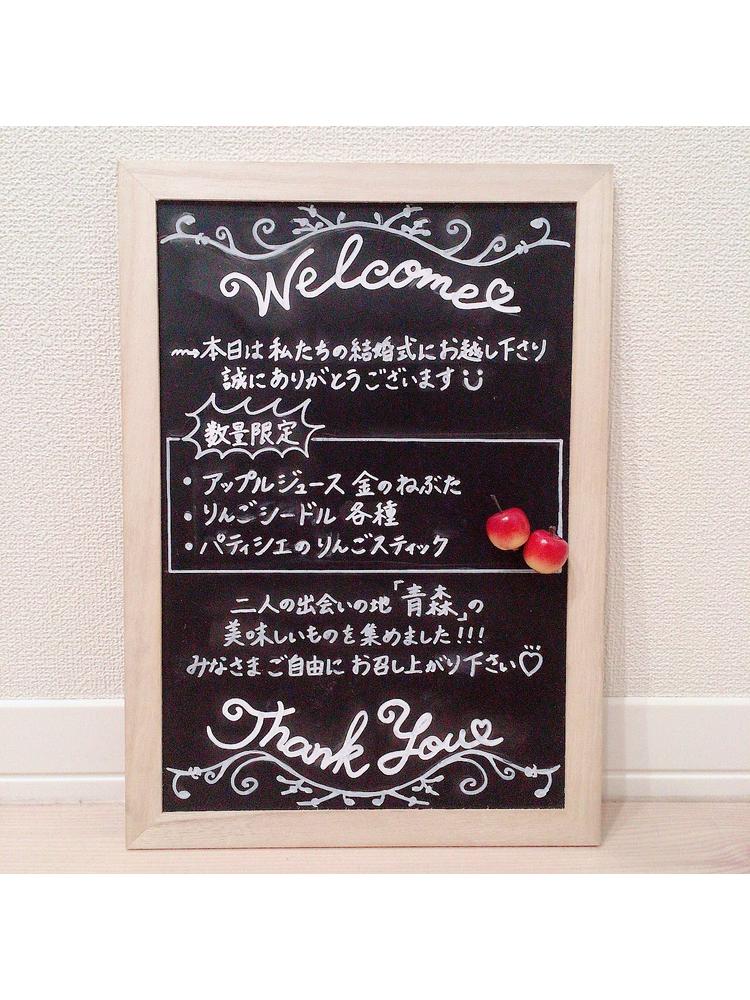 Welcome♡
本日は私たちの結婚式にお越し下さり
誠にありがとうございます
数量限定
・アップルジュース 金のねぶた
・りんごシードル 各種
・パティシエのりんごスティック
二人の出会いの地「青森」の
美味しいものを集めました!!!
みなさまご自由にお召し上がり下さい♡
Thank You♡